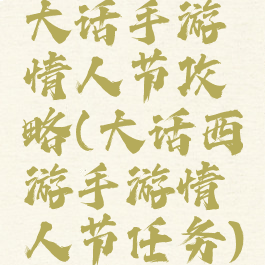 大话手游
情人节攻
略(大话西
游手游情
人节任务)